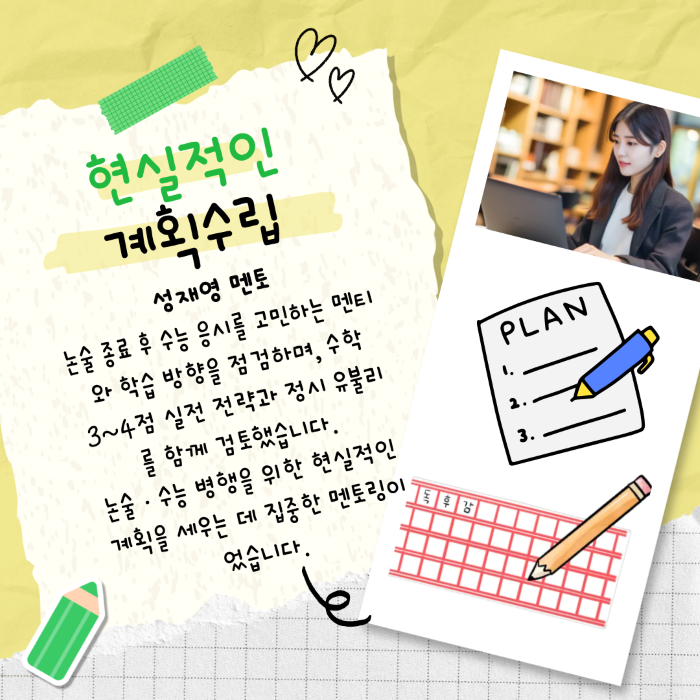 현실적인
계획수립
성재영 멘토
논술 종료 후 수능 응시를 고민하는 멘티
와 학습 방향을 점검하며, 수학
3~4점 실전 전략과 정시 유불리
를 함께 검토했습니다.
논술·수능 병행을 위한 현실적인
계획을 세우는 데 집중한 멘토링이
었습니다.
PLAN
1.
2.
3.
독후감